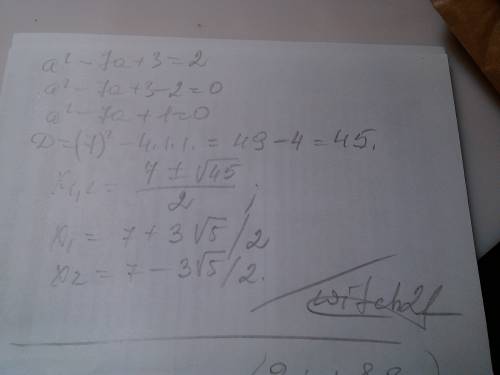 a² - 7a + 3 = 2
a² - 7a + 3 - 2 = 0
a² - 7a + 1 = 0
D = (7)² - 4.1.1. = 49 - 4 = 45.
x₁,₂ = (7 ± √45) / 2 ;
x₁ = 7 + 3√5 / 2
x₂ = 7 - 3√5 / 2.